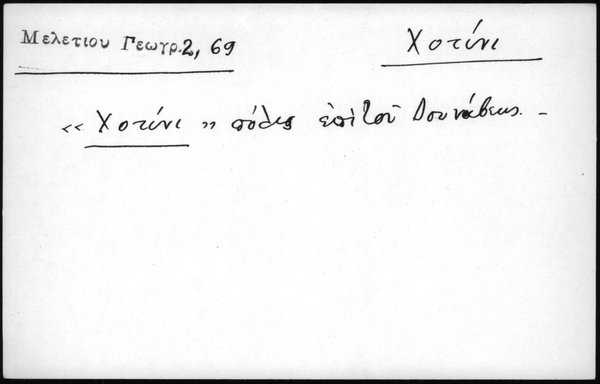 Μελετιου Γεωγρ. 2, 69
Χοτίνι
« Χοτίνι » πόλις ἐπὶ τοῦ Δουνάβεως. –